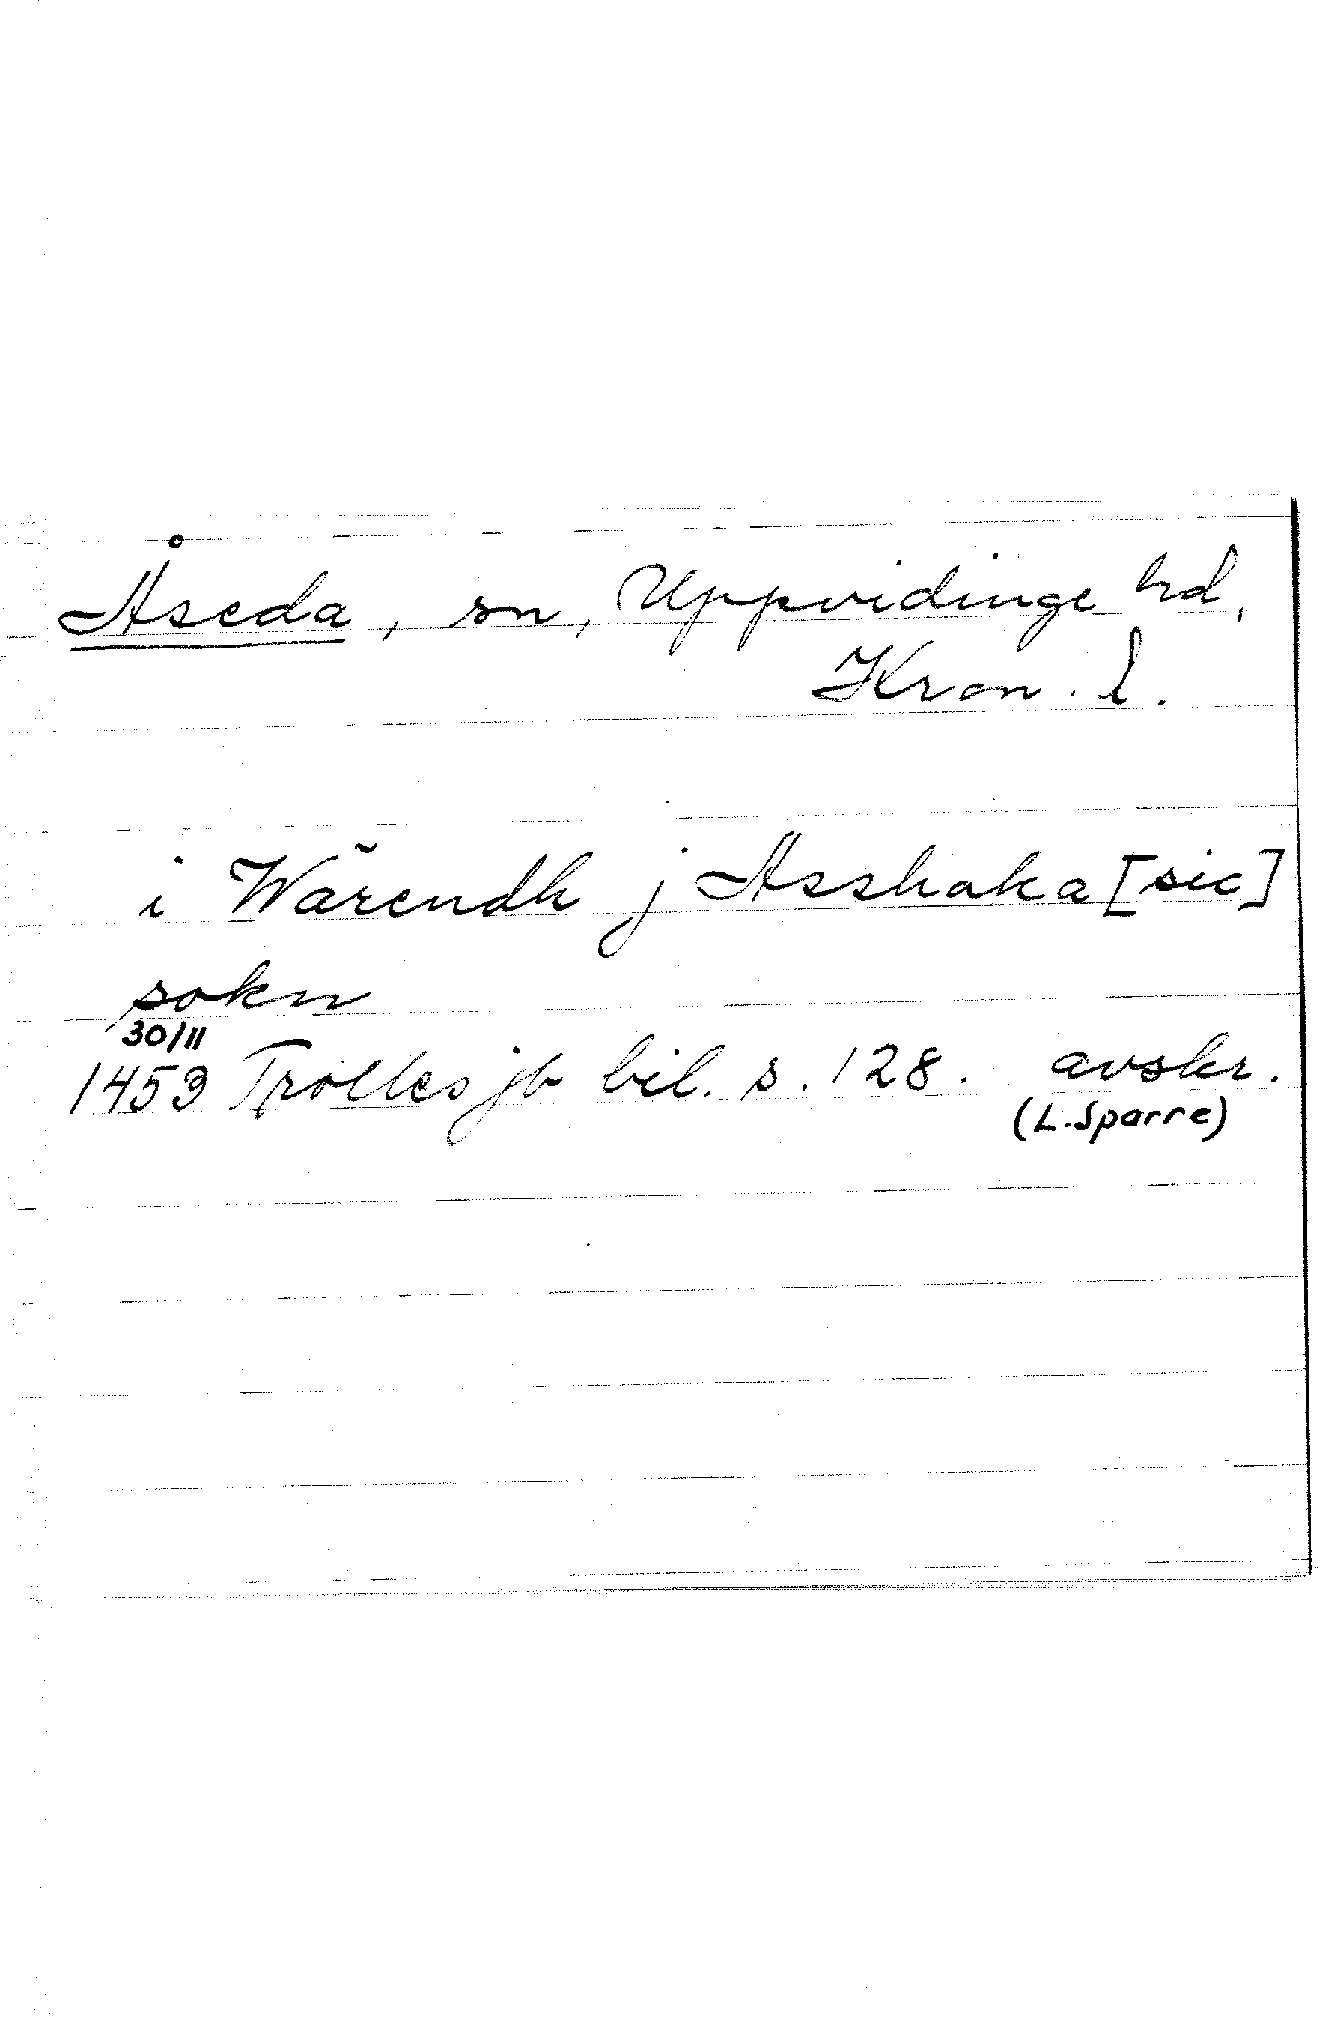 Åseda, sn, Uppvidinge hd,
Kron. l.
i Wärendh j Asshaka [sic]
sokn
30/11
1453 Trolles jb bil. s. 128. avskr.
(L. Sparre)